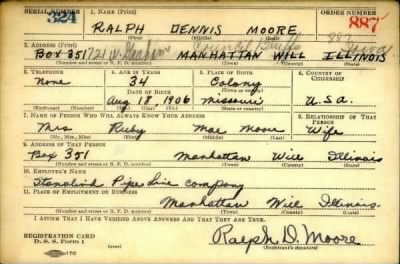 SERIAL NUMBER 1. NAME (Print) ORDER NUMBER
324 RALPH DENNIS MOORE 887
(First) (Middle) (Last)
2. ADDRESS (Print)
BOX 351 721 W. Graham Council Bluffs Iowa MANHATTAN WILL ILLINOIS
(Number and street or R. F. D. number) (Town) (County) (State)
3. TELEPHONE 4. AGE IN YEARS 5. PLACE OF BIRTH 6. COUNTRY OF CITIZENSHIP
None 34 Colony
DATE OF BIRTH (Town or county)
Aug 18, 1906 Missouri U.S.A.
(Exchange) (Number) (Mo.) (Day) (Yr.) (State or country)
7. NAME OF PERSON WHO WILL ALWAYS KNOW YOUR ADDRESS 8. RELATIONSHIP OF THAT PERSON
Mrs Ruby Mae Moore Wife
(Mr., Mrs., Miss) (First) (Middle) (Last)
9. ADDRESS OF THAT PERSON
Box 351 Manhattan Will Illinois
(Number and street or R. F. D. number) (Town) (County) (State)
10. EMPLOYER'S NAME
Stanolind Pipe Line Company
11. PLACE OF EMPLOYMENT OR BUSINESS
Manhattan Will Illinois.
(Number and street or R. F. D. number) (Town) (County) (State)
I AFFIRM THAT I HAVE VERIFIED ABOVE ANSWERS AND THAT THEY ARE TRUE.
REGISTRATION CARD
D. S. S. Form 1 Ralph D. Moore
(Registrant's signature)